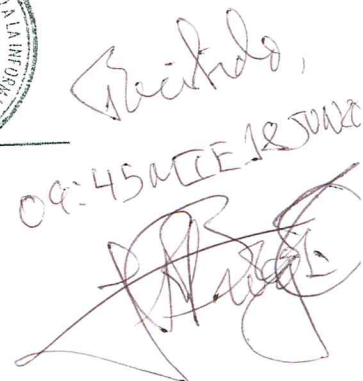 A LA INFORMA
Recibido,
09:45 MIE 18 JUNIO